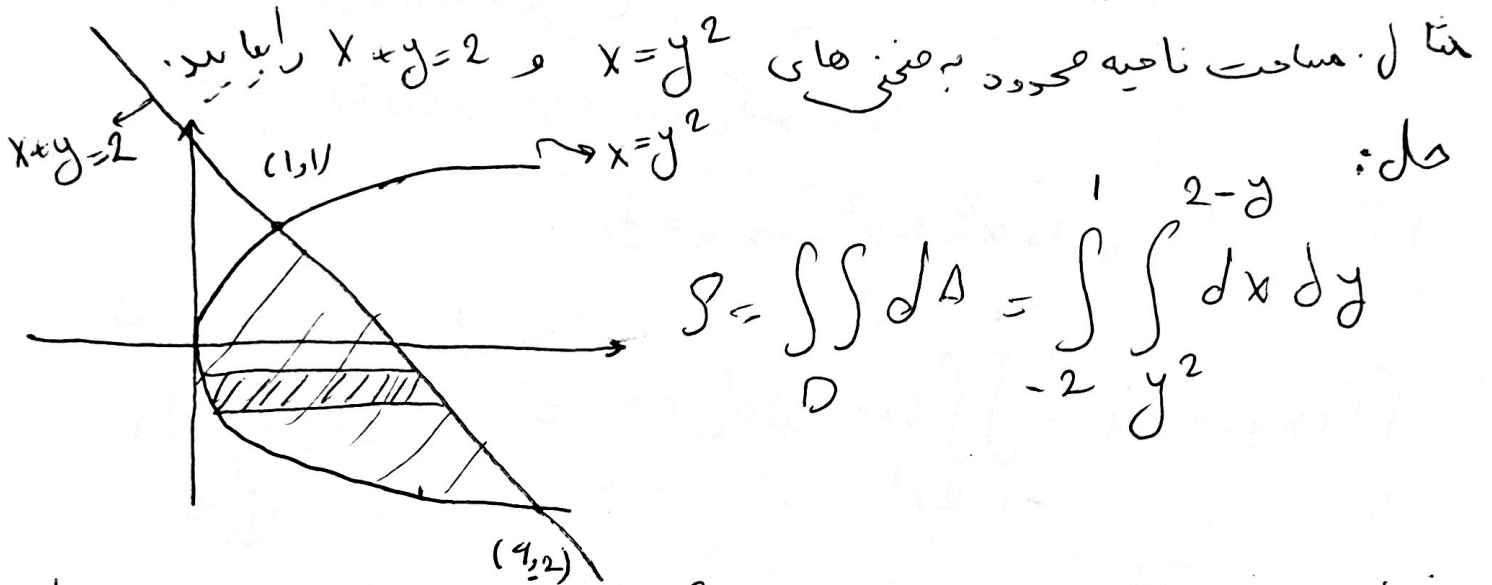 مثال. مساحت ناحیه محدود به منحنی های x = y² و x + y = 2 را بیابید.
حل:
x+y=2
(1,1)
x=y²
S = ∬_D dA = ∫_{-2}^{1} ∫_{y²}^{2-y} dx dy
(4,-2)